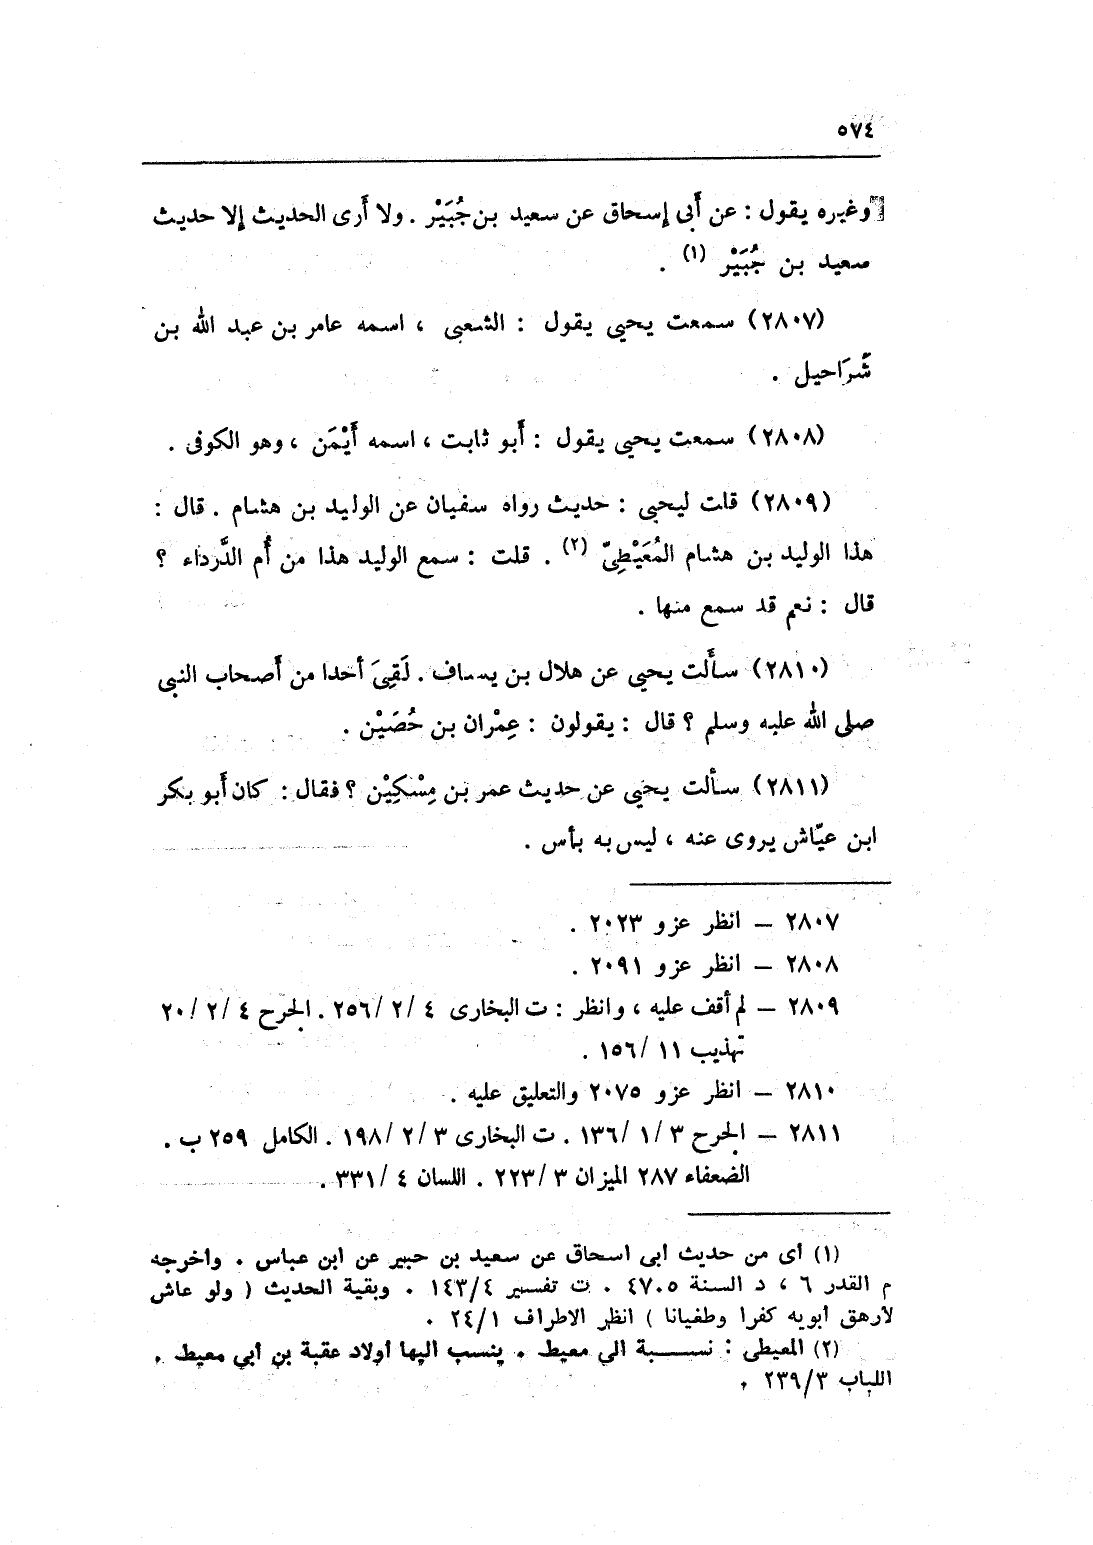 ٥٧٤
وغيره يقول : عن أَبى إسحاق عن سعيد بن جُبَيْر . ولا أَرى الحديث إلا حديث
سعيد بن جُبَيْر (١) .
(٢٨٠٧) سمعت يحيى يقول : الشعبى ، اسمه عامر بن عبد الله بن
شَرَاحيل .
(٢٨٠٨) سمعت يحيى يقول : أَبو ثابت ، اسمه أَيْمَن ، وهو الكوفى .
(٢٨٠٩) قلت ليحيى : حديث رواه سفيان عن الوليد بن هشام . قال :
هذا الوليد بن هشام المُعَيْطِىّ (٢) . قلت : سمع الوليد هذا من أُم الدَّرداء ؟
قال : نعم قد سمع منها .
(٢٨١٠) سأَلت يحيى عن هلال بن يساف . لَقِىَ أحدا من أَصحاب النبى
صلى الله عليه وسلم ؟ قال : يقولون : عِمْران بن حُصَيْن .
(٢٨١١) سألت يحيى عن حديث عمر بن مِسْكِيْن ؟ فقال : كان أَبو بكر
ابن عيّاش يروى عنه ، ليس به بأس .
٢٨٠٧ – انظر عزو ٢٠٢٣ .
٢٨٠٨ – انظر عزو ٢٠٩١ .
٢٨٠٩ – لم أقف عليه ، وانظر : ت البخارى ٤ /٢ /٢٥٦ . الجرح ٤ /٢ /٢٠
تهذيب ١١ /١٥٦ .
٢٨١٠ – انظر عزو ٢٠٧٥ والتعليق عليه .
٢٨١١ – الجرح ٣ /١ /١٣٦ . ت البخارى ٣ /٢ /١٩٨ . الكامل ٢٥٩ ب .
الضعفاء ٢٨٧ الميزان ٣ /٢٢٣ . اللسان ٤ /٣٣١ .
(١) أى من حديث أبى اسحاق عن سعيد بن حبير عن ابن عباس . وأخرجه
م القدر ٦ ، د السنة ٤٧٠٥ . ت تفسير ١٤٣/٤ . وبقية الحديث ( ولو عاش
لارهق أبويه كفرا وطغيانا ) انظر الاطراف ٢٤/١ .
(٢) المعيطى : نسبة الى معيط . ينسب اليها أولاد عقبة بن أبي معيط .
اللباب ٢٣٩/٣ .